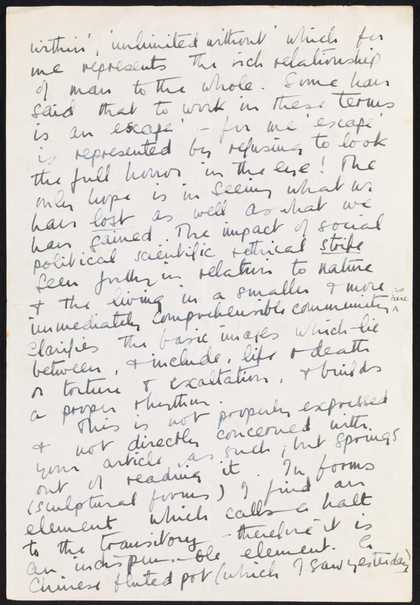 within', 'unlimited without' which for
me represents the rich relationship
of man to the whole. Some have
said that to work in these terms
is an 'escape' – for me 'escape'
is represented by refusing to look
the full horror 'in the eye'! The
only hope is in seeing what we
have lost as well as what we
have gained. The impact of social
political scientific ethical strife
seen in relation to nature
& the living in a smaller & more
immediately comprehensible community here
clarifies the basic images which lie
between, & include, life & death
or torture & exaltation, & builds
a proper rhythm.
This is not properly expressed
& not directly concerned with
your article, as such, but springs
out of reading it. In forms
(sculptural forms) I find an
element which calls a halt
to the transitory – therefore it is
an indispensable element. A
Chinese fluted pot (which I saw yesterday)